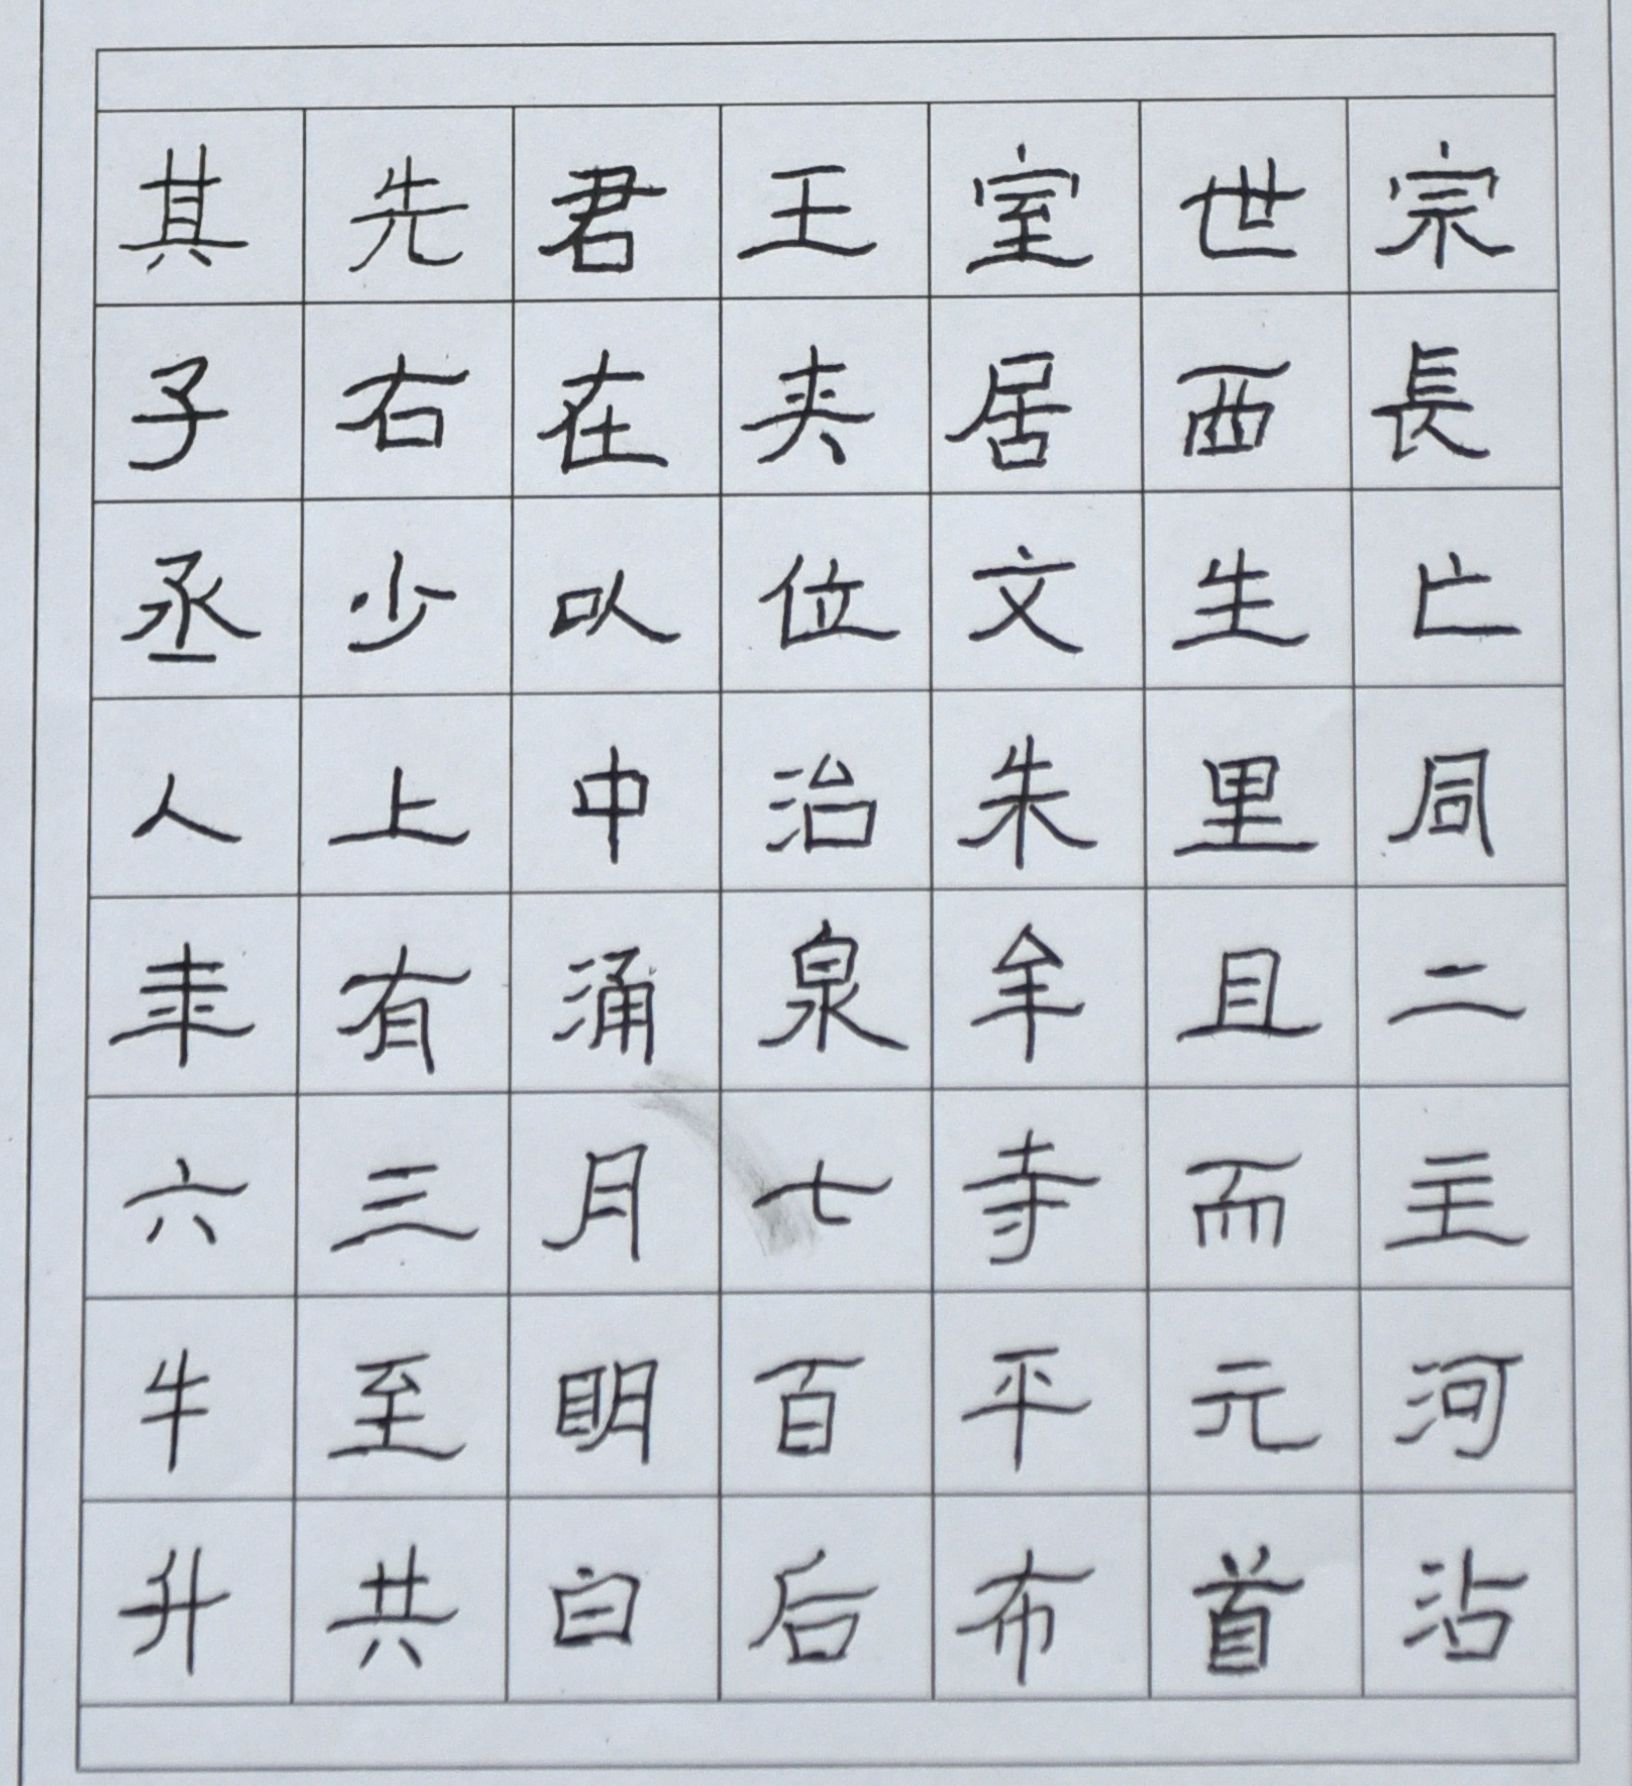 其先君王室世宗
子右在夹居西長
丞少以位文生亡
人上中治朱里同
年有涌泉牟且二
六三月七寺而主
牛至明百平元河
升共白后布首沾